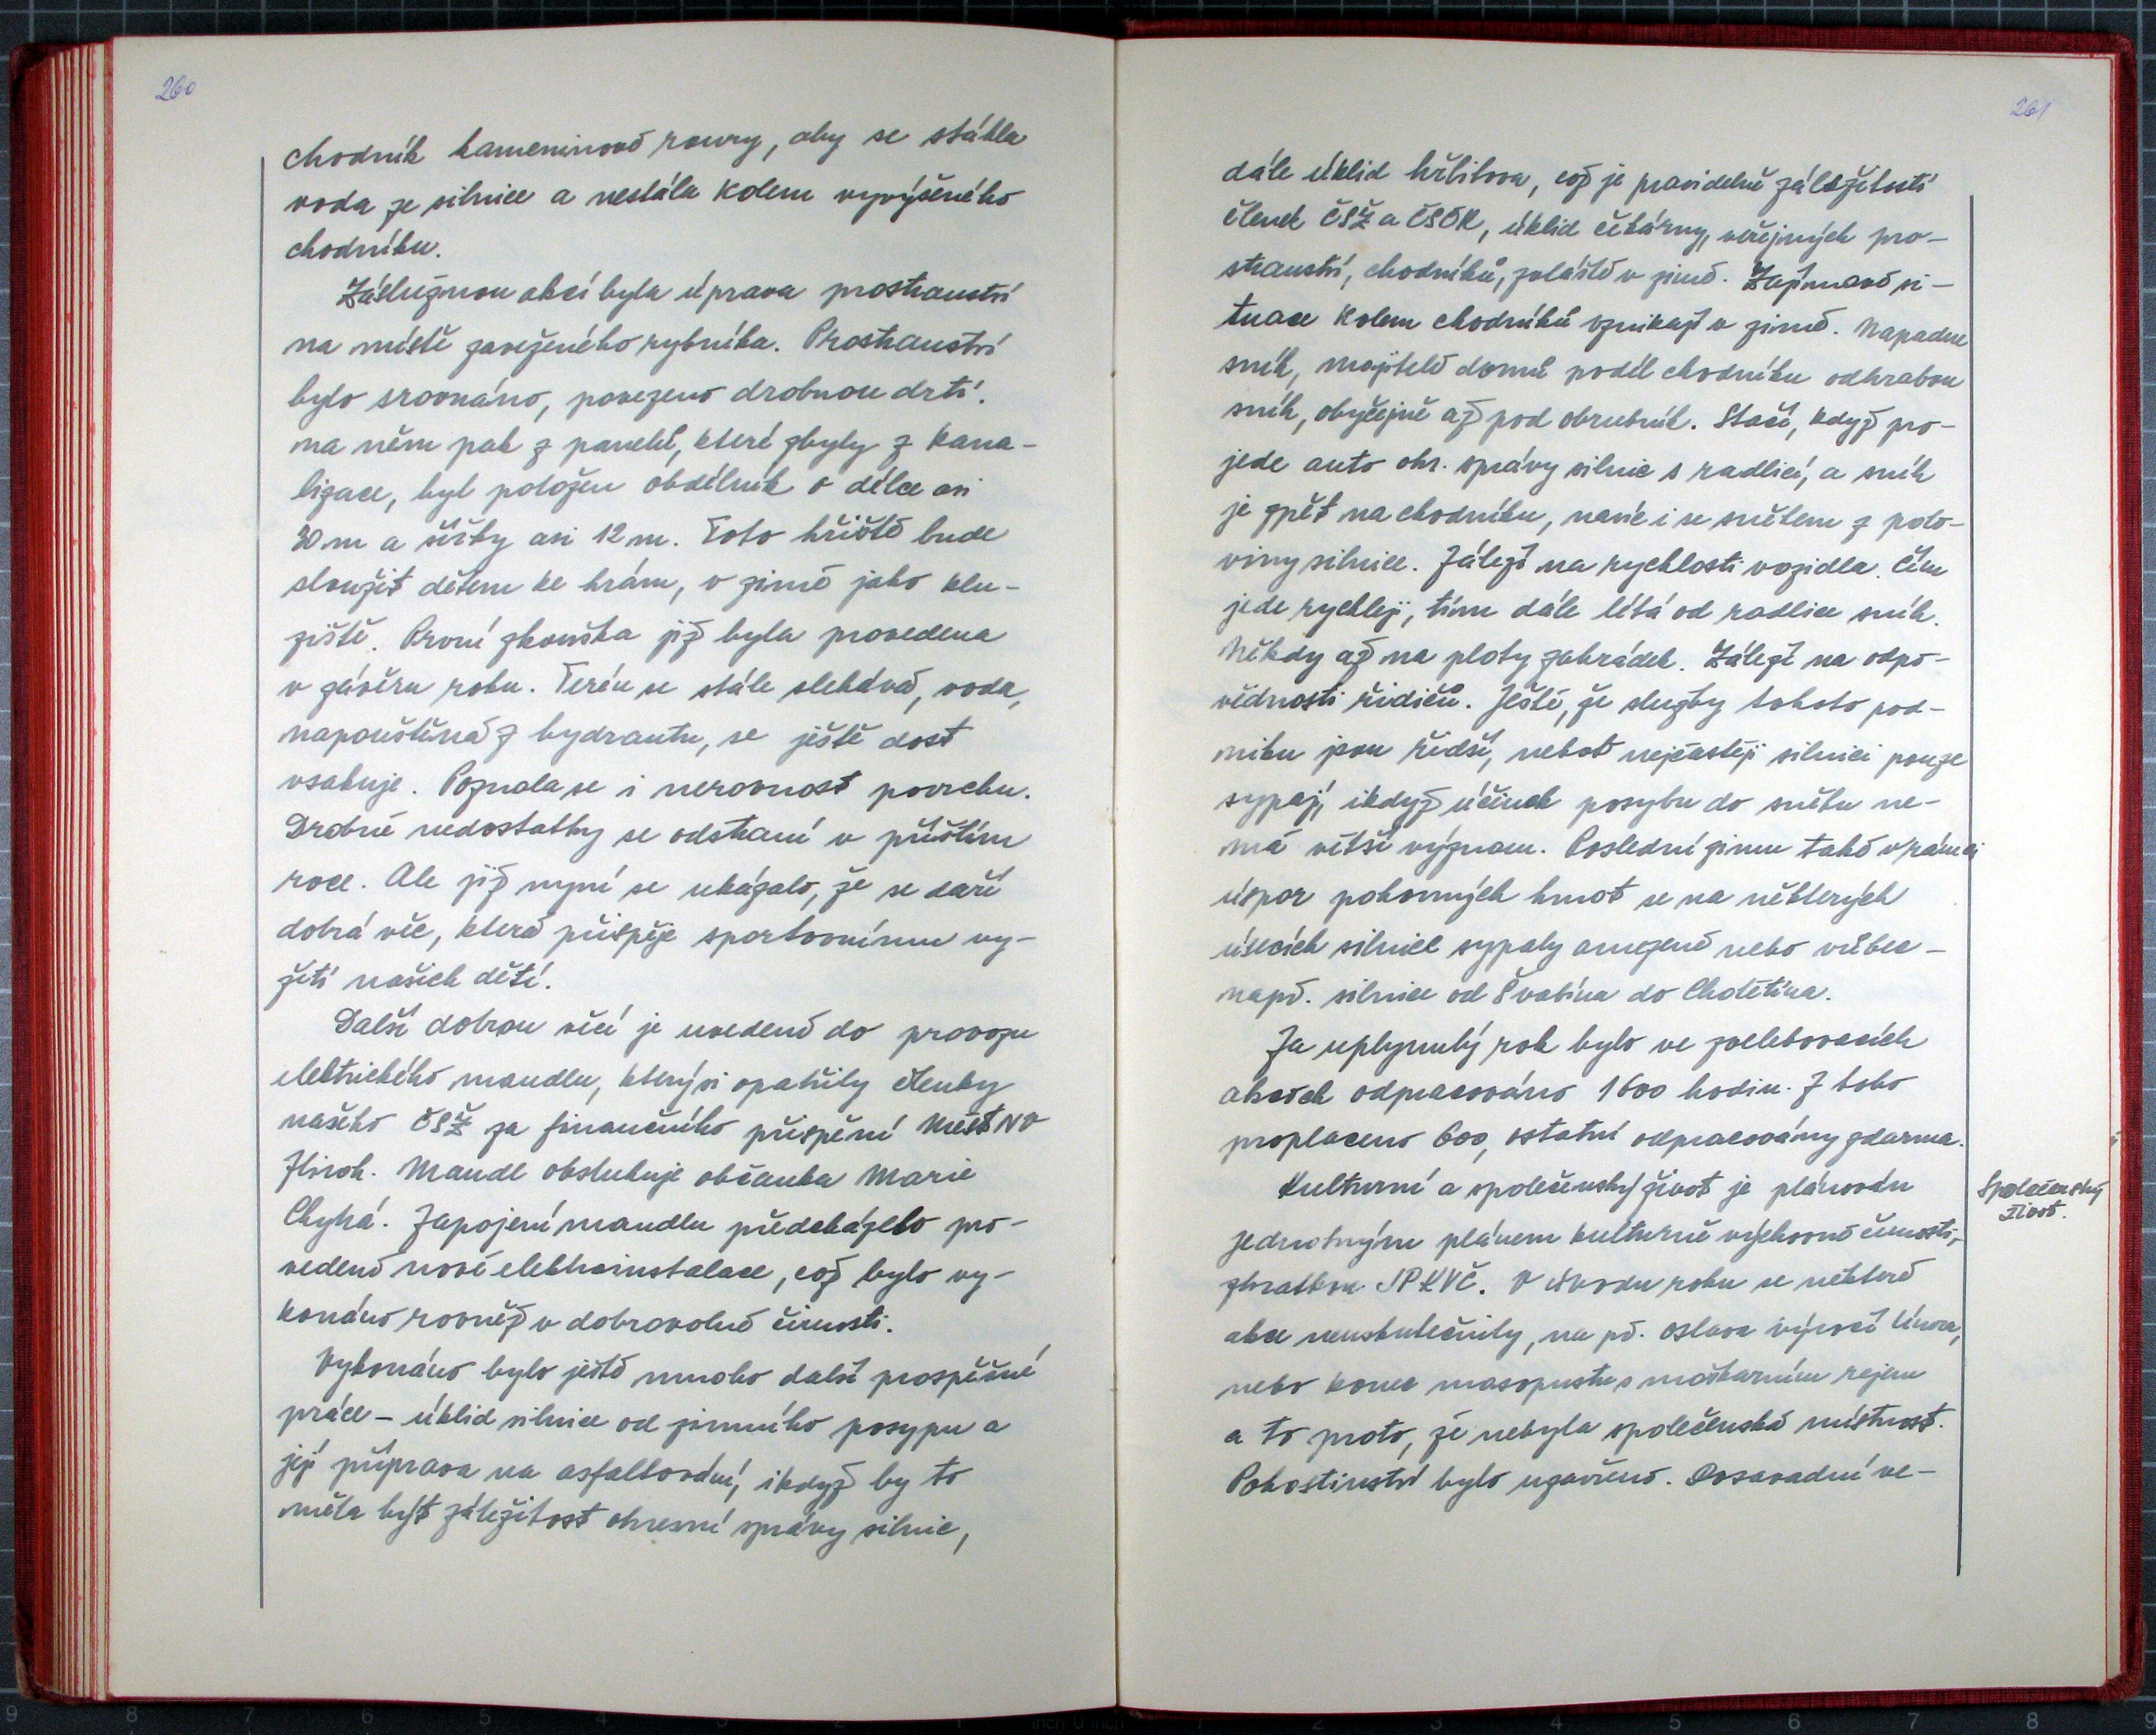 260
chodník kameninové roury, aby se stáhla
voda ze silnice a nestála kolem vyvýšeného
chodníku.
Záslužnou akcí byla úprava prostranství
na místě zavezeného rybníka. Prostranství
bylo srovnáno, povezeno drobnou drtí.
na něm pak z panelů, které zbyly z kana-
lizace, byl položen obdélník o délce asi
30 m a šířky asi 12 m. Toto hřiště bude
sloužit dětem ke hrám, v zimě jako klu-
ziště. První zkouška již byla provedena
v závěru roku. Terén se stále slehává, voda,
napouštěná z hydrantu, se ještě dost
vsakuje. Poznala se i nerovnost povrchu.
Drobné nedostatky se odstraní v příštím
roce. Ale již nyní se ukázalo, že se daří
dobrá věc, která přispěje sportovnímu vy-
žití našich dětí.
Další dobrou věcí je uvedené do provozu
elektrického mandlu, který si opatřily členky
našeho ČSŽ za finančního přispění MěstNV
Zbiroh. Mandl obsluhuje občanka Marie
Chyhá. Zapojení mandlu předcházelo pro-
vedené nové elektroinstalace, což bylo vy-
konáno rovněž v dobrovolné činnosti.
Vykonáno bylo ještě mnoho další prospěšné
práce - úklid silnice od zimního posypu a
její příprava na asfaltování, i když by to
měla být záležitost okresní správy silnic,
261
dále úklid hřbitova, což je pravidelně záležitostí
členek ČSŽ a ČSČK, úklid čekárny, veřejných pro-
stranství, chodníků, zvláště v zimě. Zajímavé si-
tuace kolem chodníků vznikají v zimě. Napadne
sníh, majitelé domů podél chodníku odhrabou
sníh, obyčejně až pod obrubník. Stačí, když pro-
jede auto okr. správy silnic s radlicí, a sníh
je zpět na chodníku, navíc i se sněhem z polo-
viny silnice. Záleží na rychlosti vozidla. Čím
jede rychleji, tím dále létá od radlice sníh.
Někdy až na ploty zahrádek. Záleží na odpo-
vědnosti řidičů. Ještě, že služby tohoto pod-
niku jsou řidší, neboť nejčastěji silnici pouze
sypají, i když účinek posypu do sněhu ne-
má větší význam. Poslední zimu také v rámci
úspor pohonných hmot se na některých
úsecích silnice sypaly omezeně nebo vůbec -
např. silnice od Švabína do Chotětína.
Za uplynulý rok bylo ve zvelebovacích
akcích odpracováno 1600 hodin. Z toho
proplaceno 600, ostatní odpracovány zdarma.
Kulturní a společenský život je plánován
jednotným plánem kulturně výchovné činnosti,
zkratkou JPKVČ. V úvodu roku se některé
akce neuskutečnily, na př. oslava výročí Února,
nebo konec masopustu s maškarním rejem
a to proto, že nebyla společenská místnost.
Pohostinství bylo uzavřeno. Dosavadní ve-
Společenský
život.